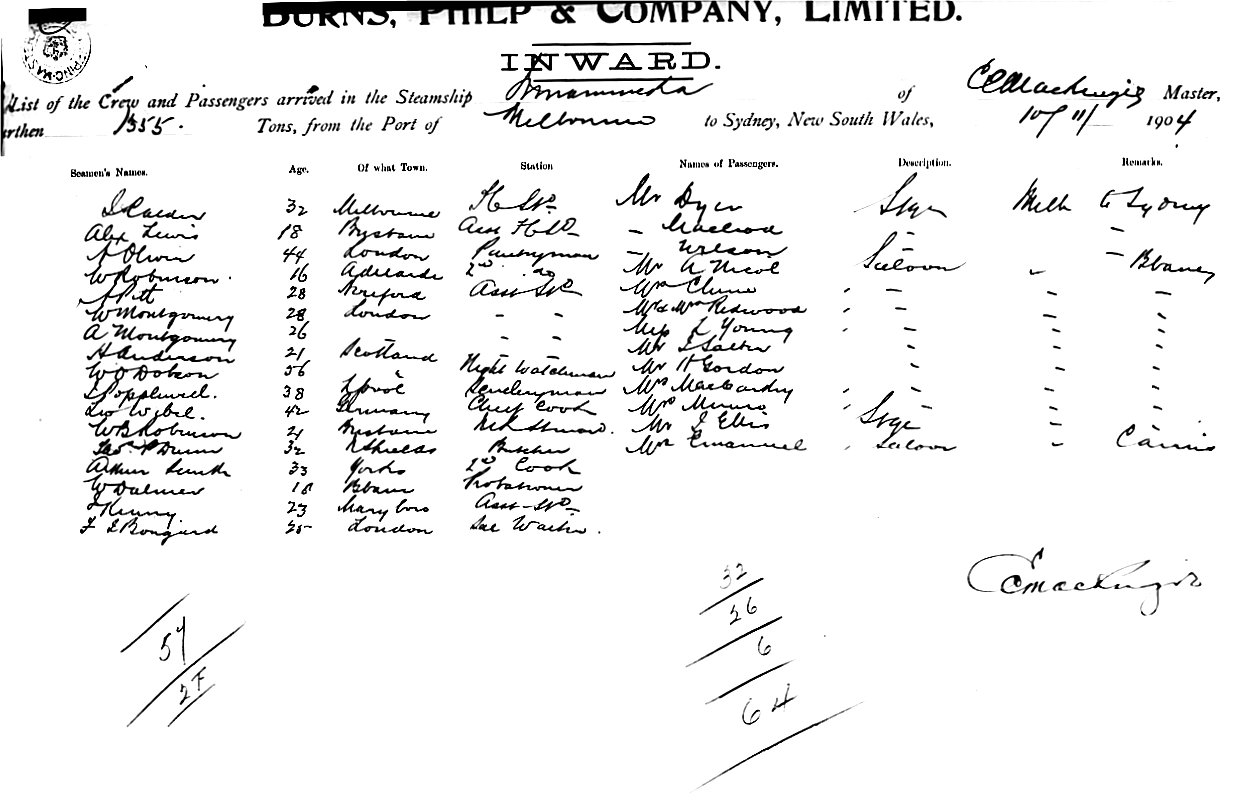 BURNS, PHILP & COMPANY, LIMITED.
INWARD.
List of the Crew and Passengers arrived in the Steamship Innamincka of C Mackenzie Master,
urthen 1355. Tons, from the Port of Melbourne to Sydney, New South Wales, 10/11 1904
Seamen's Names. Age. Of what Town. Station Names of Passengers. Description. Remarks.
32 Melbourne Mr Dyer Stge Melb to Sydney
Alex Lewis 18 Brisbane Asst – Macleod – –
A Olwin 44 London Pantryman – Wilson – –
W Robinson. 16 Adelaide 2nd do Mr A Nicol Saloon " Bbane
A Pitt 28 Asst Std Mrs Clune " – – –
W Montgomery 28 London – – Mr & Mrs Redwood " – – –
A Montgomery 26 – – Miss L Young " – – –
H Anderson 21 Scotland – – Mr J Salter – – –
W O Dobson 56 Night Watchman Mr H Gordon – – –
38 Lpool Mrs MacCardy " – – –
42 Germany Chief Cook Mrs Munro " – – –
W B Robinson 21 Brisbane Mr J Ellis Stge – –
32 N Shields Butcher Mr Emanuel " Saloon – Cairns
Arthur Smith 33 Yorks 2nd Cook
W Dalmer 18 Bbane Probationer
Kenny 23 Maryboro Asst Std
F J Bongard 25 London Sal Waiter.
32
26
6
64
57
27
C Mackenzie